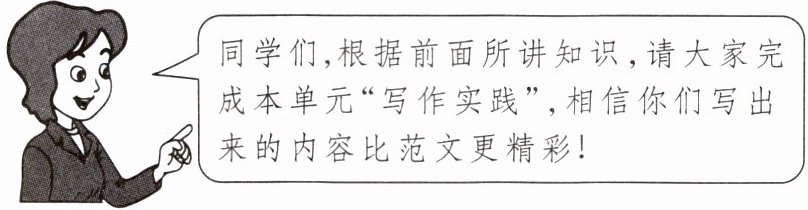 同学们,根据前面所讲知识,请大家完
成本单元“写作实践”,相信你们写出
来的内容比范文更精彩!